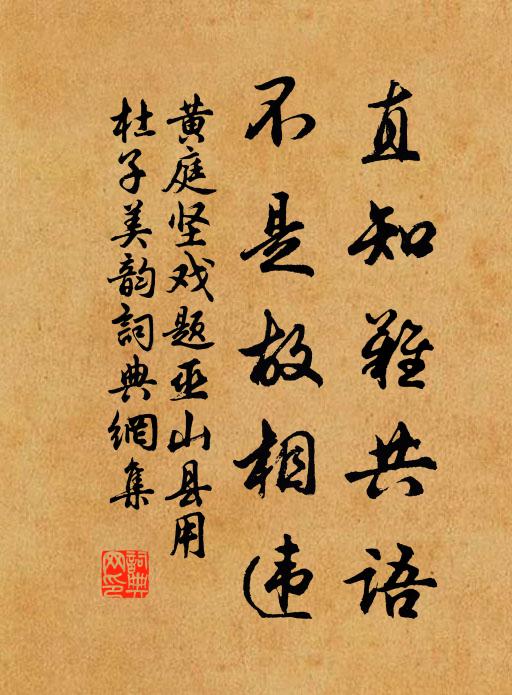 直知难共语
不是故相违
黄庭坚戏题巫山县用
杜子美韵詞典網集
詞典网印